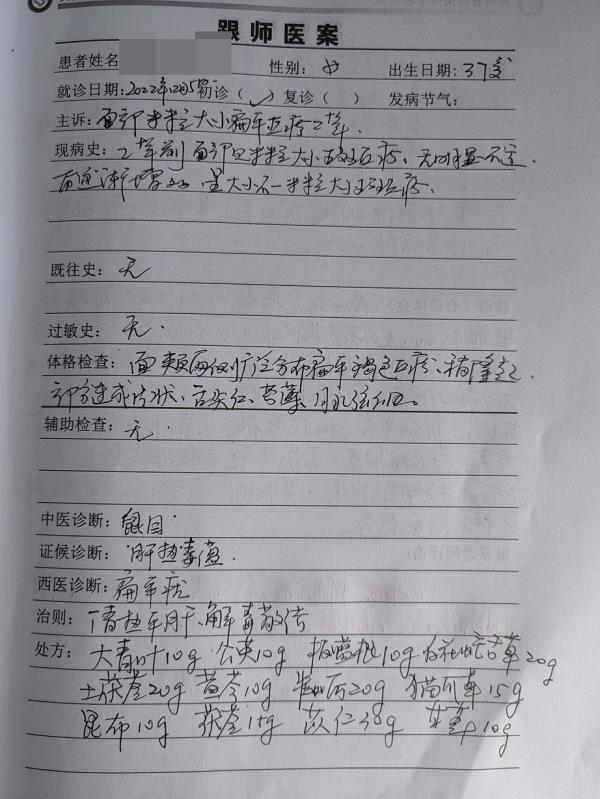 跟师医案
患者姓名 性别：女 出生日期：37岁
就诊日期：2022年12月5 初诊（✓）复诊（ ） 发病节气：
主诉：面部米粒大小扁平丘疹2年
现病史：2年前面部见米粒大小丘疹、无明显不适
渐增多 呈大小不一米粒大小丘疹、
既往史：无
过敏史：无.
体格检查：面颊两侧广泛分布扁平褐色丘疹、稍隆起、
部分连成片状、舌尖红、苔薄、脉弦细.
辅助检查：无.
中医诊断：鼠目.
证候诊断：肝热毒蕴.
西医诊断：扁平疣
治则：清热平肝、解毒散结
处方：大青叶10g 公英10g 板蓝根10g 蛇舌草20g
土茯苓20g 黄芩10g 20g 猫爪草15g
昆布10g 茯苓15g 苡仁30g 10g